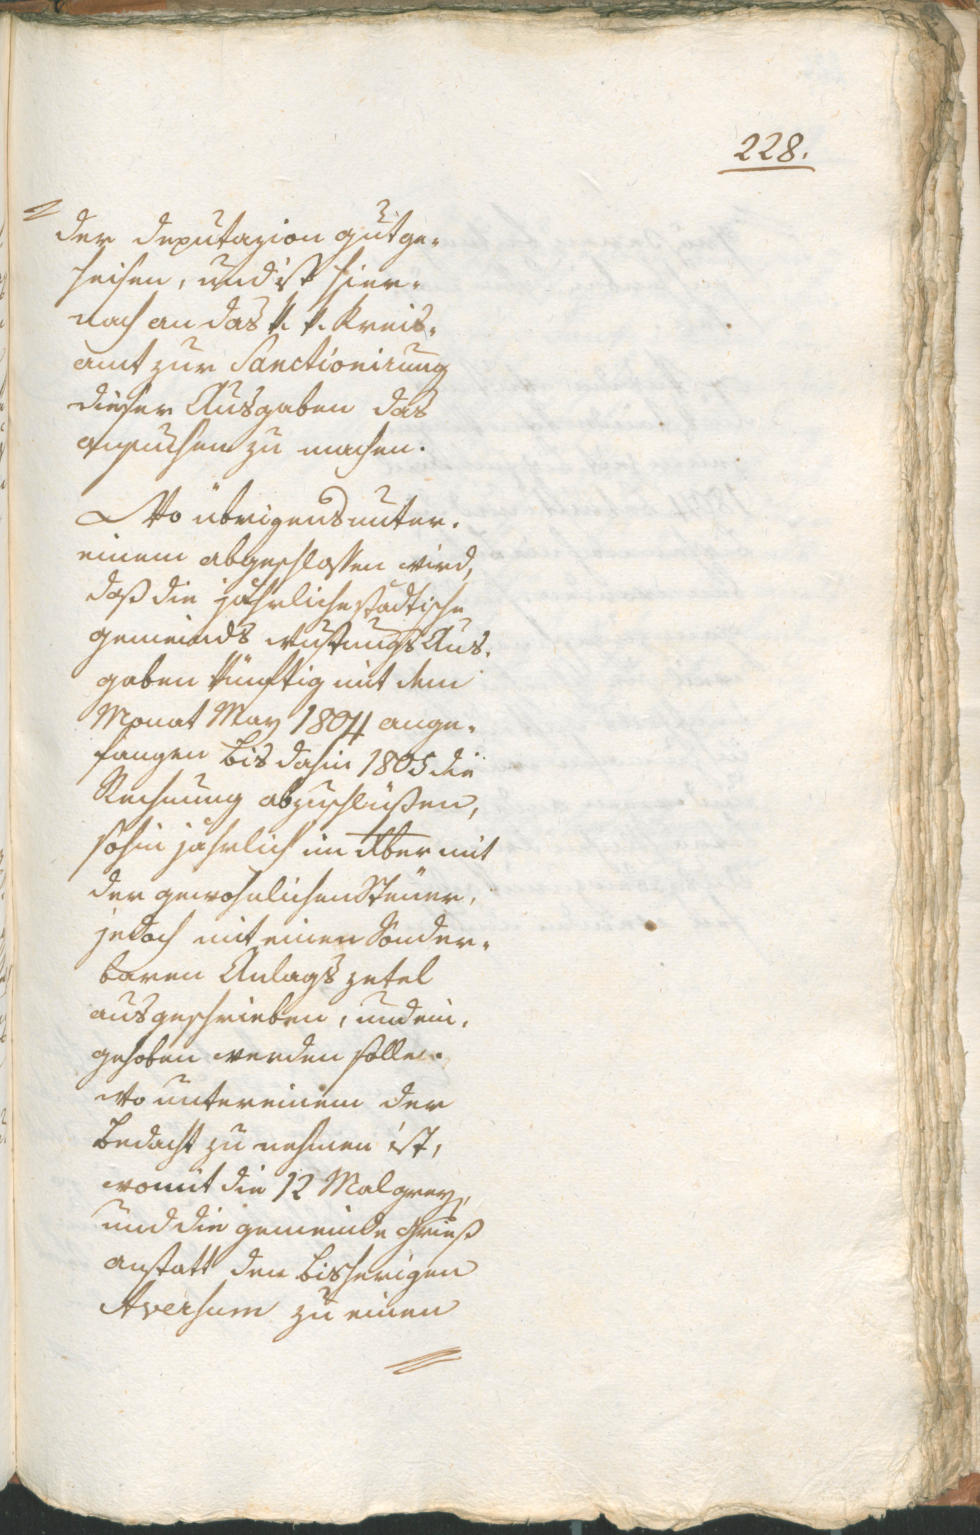 228.
der Deputazion gutge-
heisen, und ist hier-
nach an das k. k. Kreis-
amt zur Sanctionirung
dieser Ausgaben das
ansuchen zu machen.
Wo übrigens unter-
einem abgeschlossen wird,
daß die jährliche städtische
gemeinds Aus-
gaben künftig mit dem
Monat May 1804 ange-
fangen bis dahin 1805 die
Rechnung abzuschlüßen,
sohin jährlich im 8ber mit
der gewohnlichen Steuer,
jedoch mit einen Sonder-
baren Anlags zetel
ausgeschrieben, und ein-
gehoben werden solle.
wo untereinem der
bedacht zu nehmen ist,
womit die 12 Malgrey,
und die gemeinde Grieß
anstatt den bisherigen
Aversum zu einen